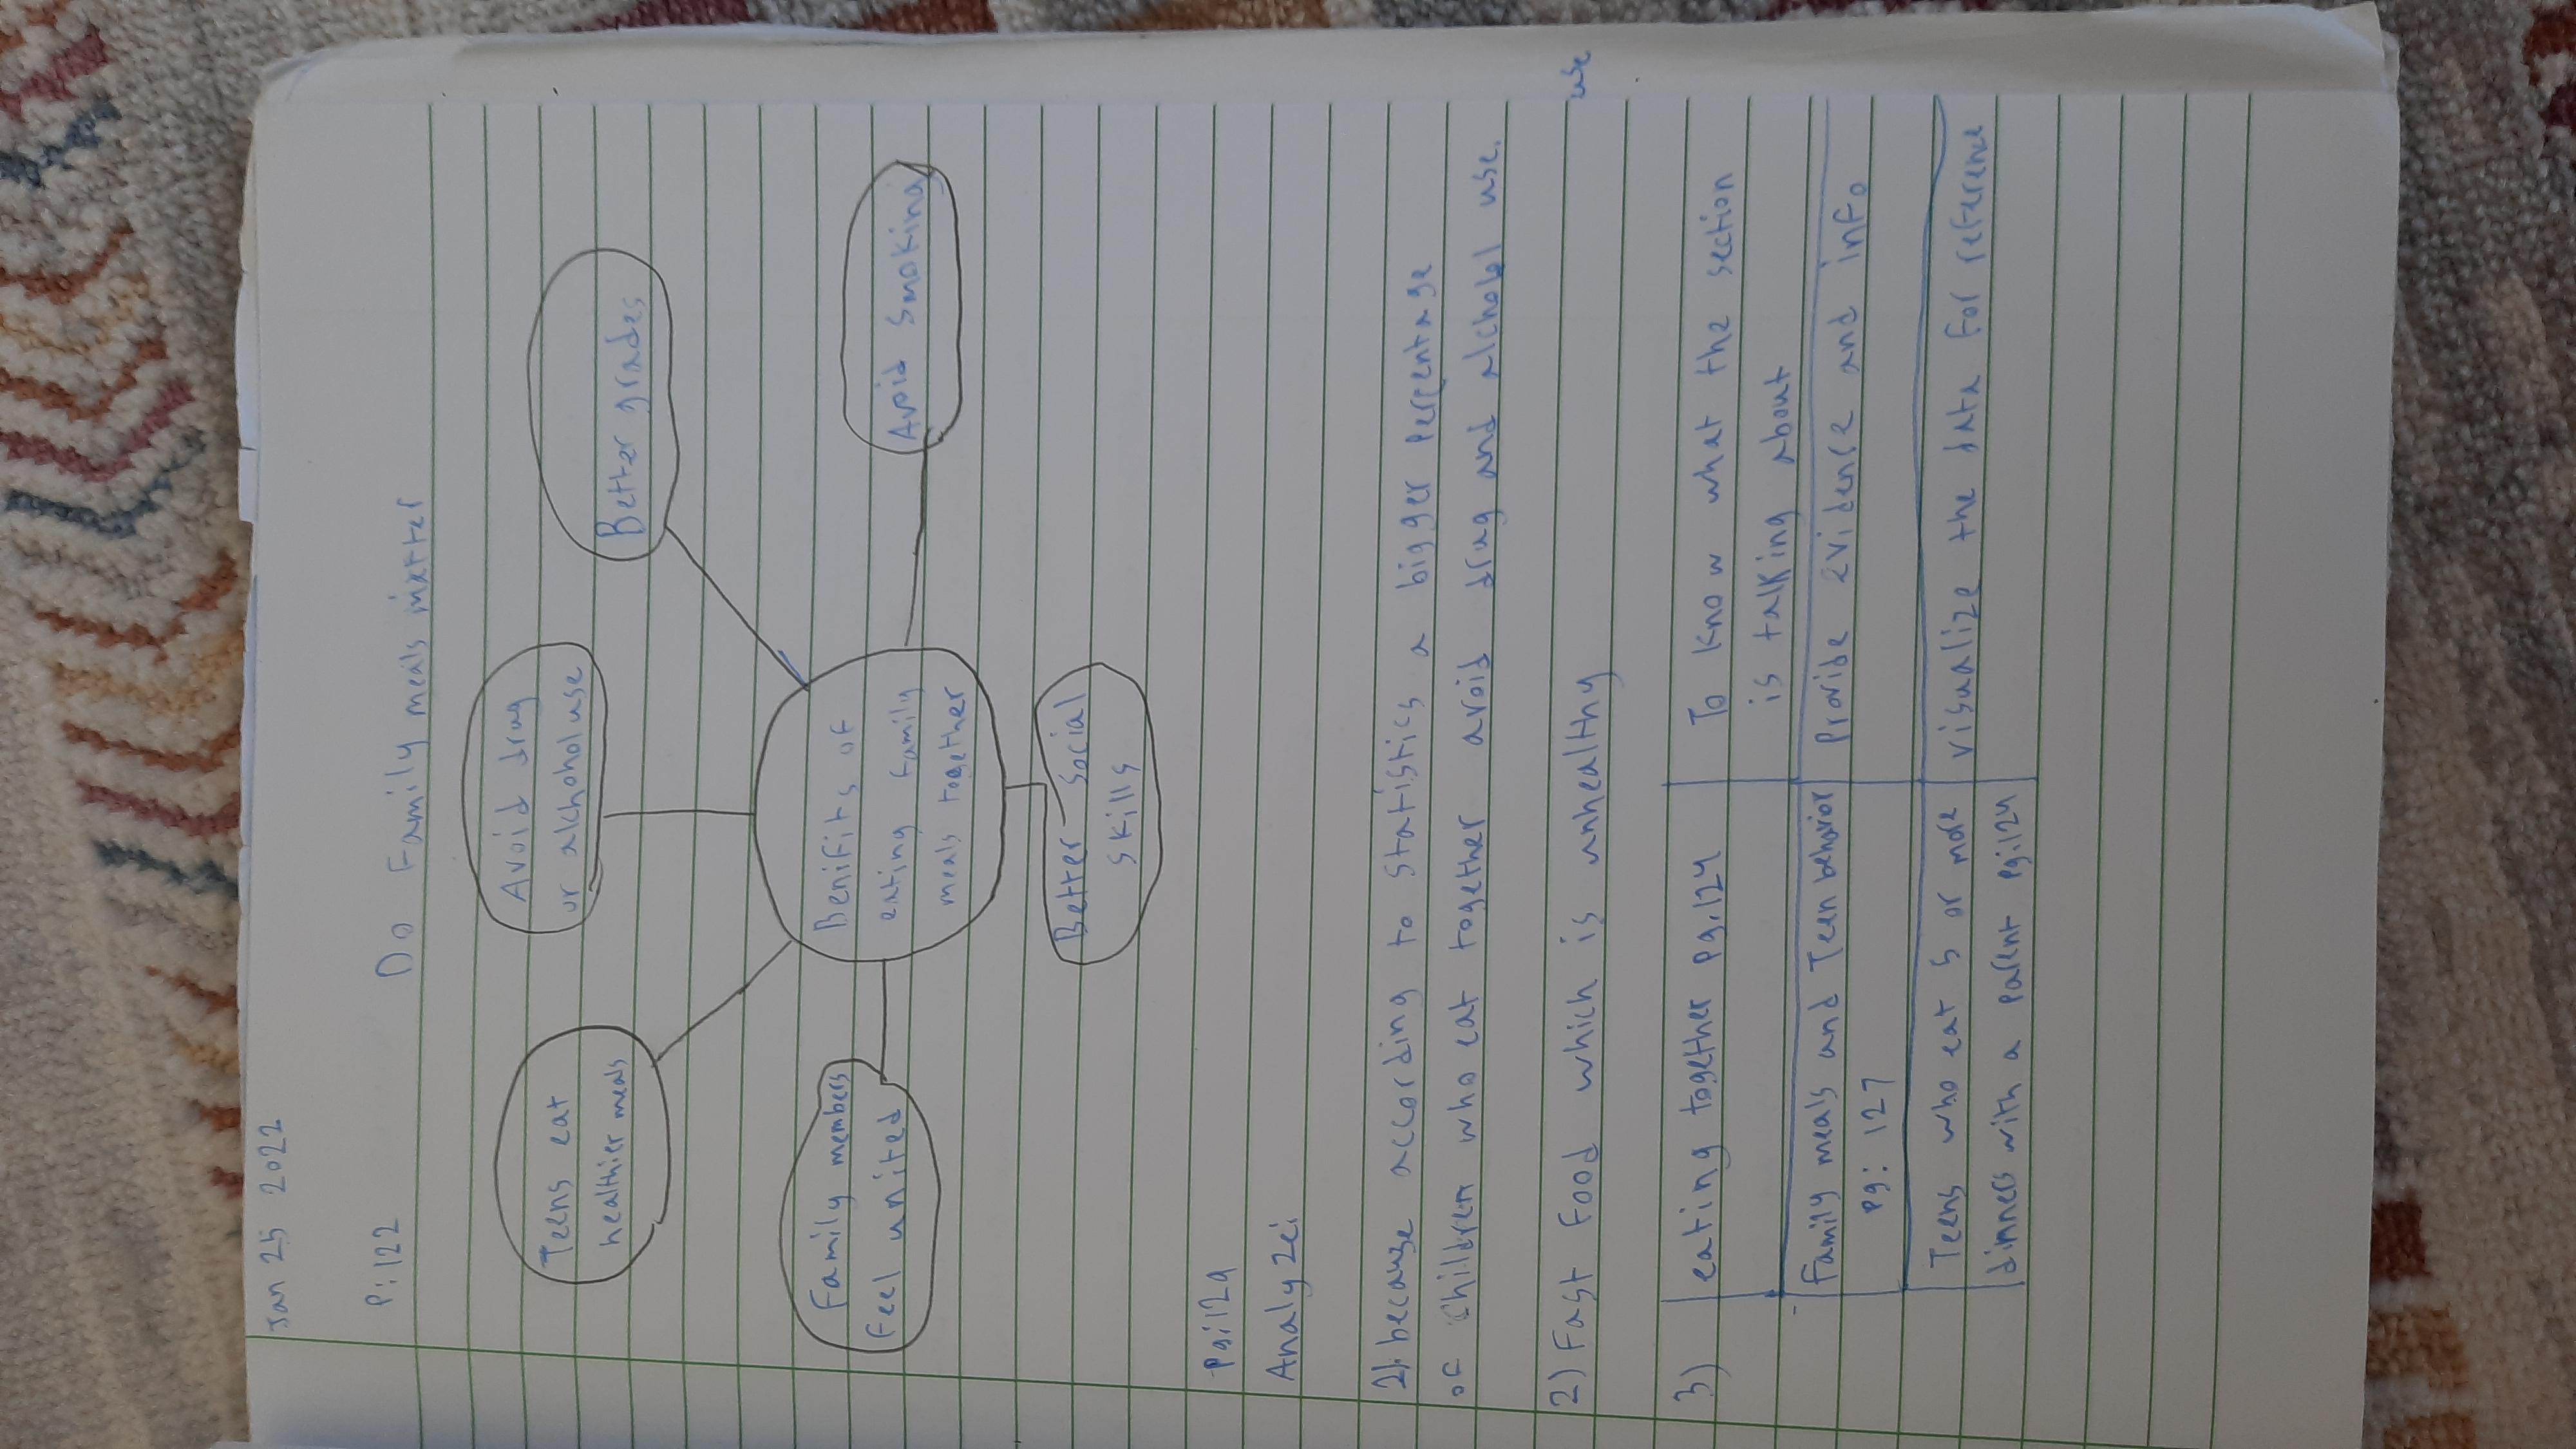 Jan 25 2022
P:122 Do Family meals matter
Avoid drug
or alchohol use
Teens eat
healthier meals
Better grades
Family members
Feel united
Benifits of
eating family
meals together
Avoid Smoking
Better Social
skills
Pg:129
Analyze:
2). because according to statistics a bigger percentage
of Children who eat together avoid drug and alchohol use.
2) Fast Food which is unhealthy
use
3) eating together pg.124
To know what the section
is talking about
Family meals and Teen behavior
pg: 127
Provide evidence and info
Teens who eat 5 or more
dinners with a parent pg:124
visualize the data for reference